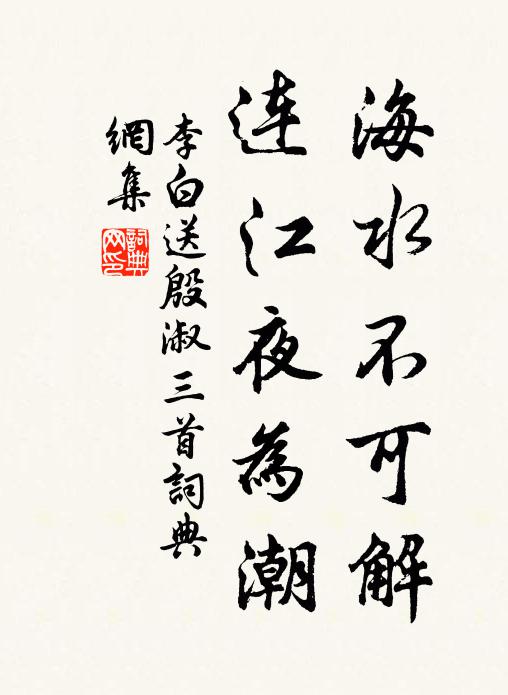 海水不可解
連江夜為潮
李白送殷淑三首詞典
網集
詞典
网印